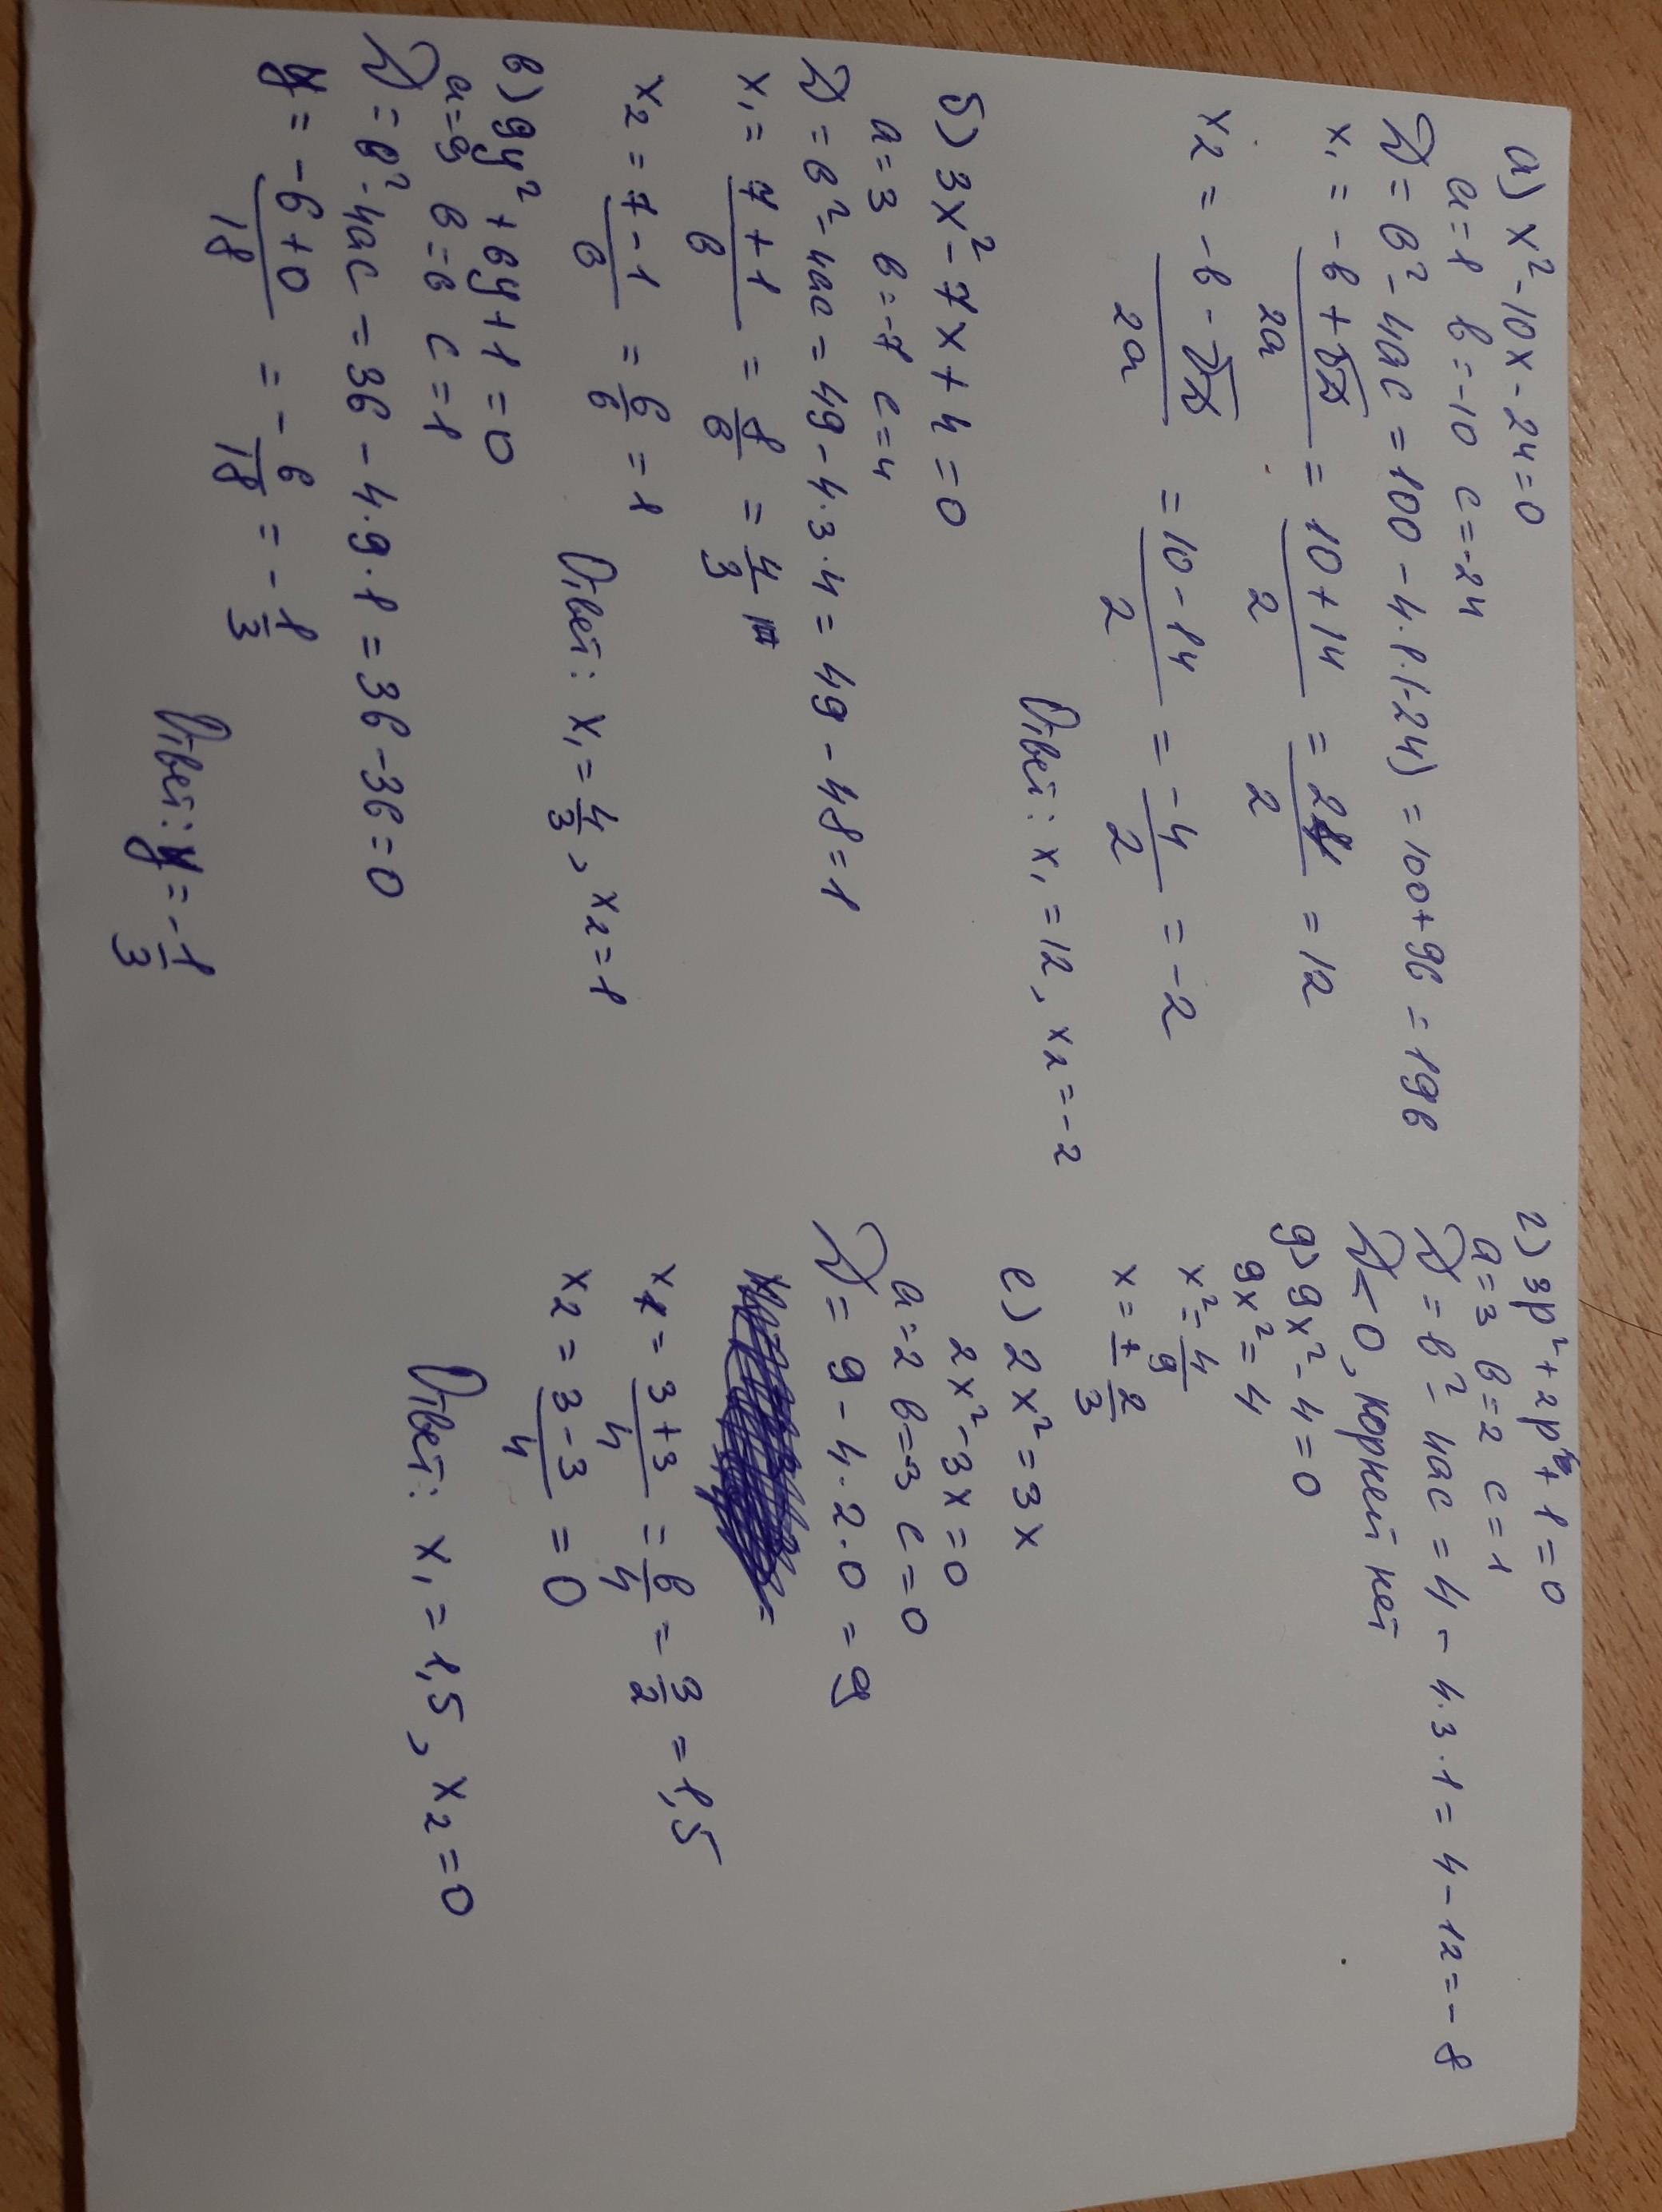 а) x² - 10x - 24 = 0
a = 1 b = -10 c = -24
D = b² - 4ac = 100 - 4·1·(-24) = 100 + 96 = 196
x₁ = -b + √D / 2a = 10 + 14 / 2 = 24 / 2 = 12
x₂ = -b - √D / 2a = 10 - 14 / 2 = -4 / 2 = -2
Ответ: x₁ = 12, x₂ = -2
б) 3x² - 7x + 4 = 0
a = 3 b = -7 c = 4
D = b² - 4ac = 49 - 4·3·4 = 49 - 48 = 1
x₁ = 7 + 1 / 6 = 8 / 6 = 4 / 3
x₂ = 7 - 1 / 6 = 6 / 6 = 1
Ответ: x₁ = 4/3, x₂ = 1
в) 9y² + 6y + 1 = 0
a = 9 b = 6 c = 1
D = b² - 4ac = 36 - 4·9·1 = 36 - 36 = 0
y = -6 + 0 / 18 = - 6 / 18 = - 1 / 3
Ответ: y = - 1/3
г) 3p² + 2p + 1 = 0
a = 3 b = 2 c = 1
D = b² - 4ac = 4 - 4·3·1 = 4 - 12 = -8
D < 0, корней нет
д) 9x² - 4 = 0
9x² = 4
x² = 4/9
x = ± 2/3
е) 2x² = 3x
2x² - 3x = 0
a = 2 b = -3 c = 0
D = 9 - 4·2·0 = 9
x₁ = 3 + 3 / 4 = 6 / 4 = 3 / 2 = 1,5
x₂ = 3 - 3 / 4 = 0
Ответ: x₁ = 1,5, x₂ = 0